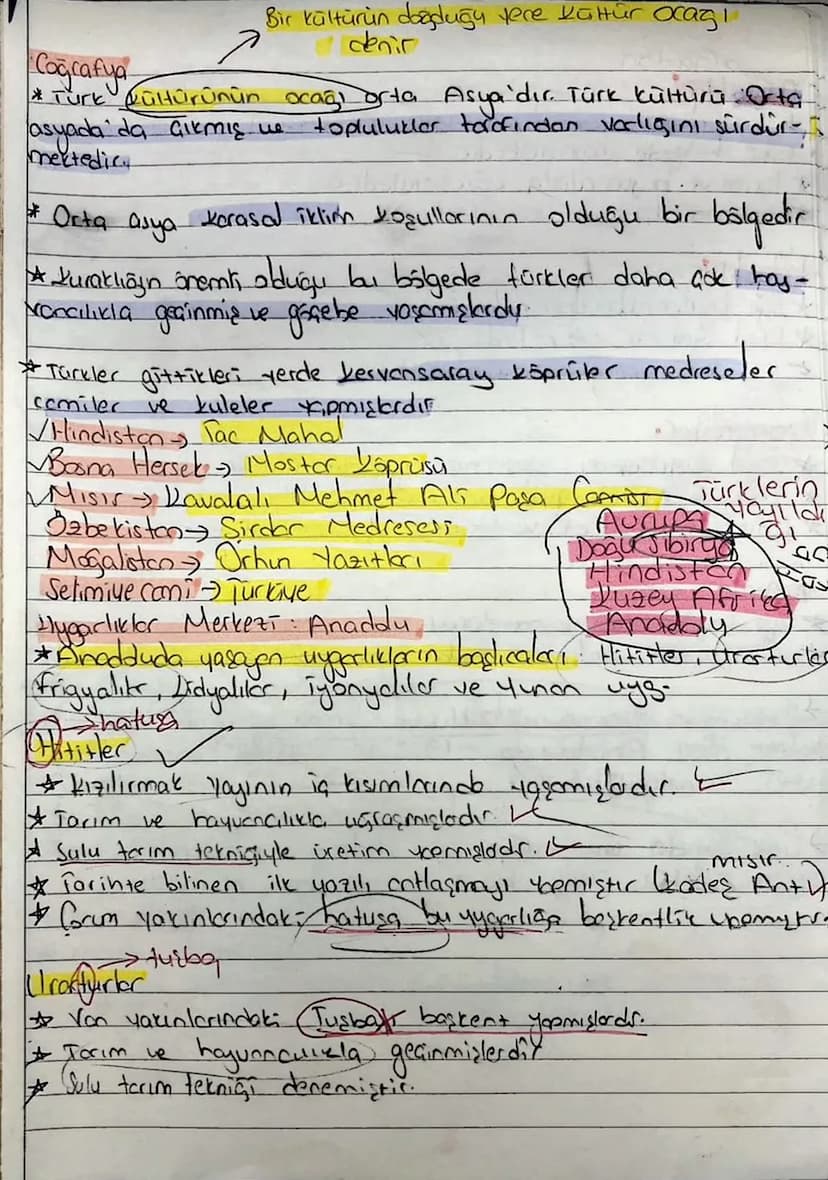 Bir kültürün doğduğu yere kültür ocağı
denir
Coğrafya
* Türk kültürünün ocağı orta Asya'dır. Türk kültürü Orta
asyada'da çıkmış ve topluluklar tarafından varlığını sürdür-
mektedir.
* Orta asya karasal iklim koşullarının olduğu bir bölgedir
* Kuraklığın önemli olduğu bu bölgede türkler daha çok hay-
vancılıkla geçinmiş ve göçebe yaşamışlardır
* Türkler gittikleri yerde kervansaray köprüler medreseler
camiler ve kuleler yapmışlardır
✓Hindistan → Tac Mahal
✓Bosna Hersek → Mostar Köprüsü
✓Mısır → Kavalalı Mehmet Ali Paşa Camisi
Özbekistan → Şirdar Medresesi
Moğolistan → Orhun Yazıtları
Selimiye cami → Türkiye
Türklerin
yayıldı
ğı
Avrupa
Doğu Sibirya
Hindistan
Kuzey Afrika
Anadolu
Uygarlıklar Merkezi: Anadolu
* Anadduda yaşayan uygarlıkların başlıcaları: Hititler, Urartular
Frigyalılr, Lidyalılar, iyonyalılar ve Yunan uyg.
→ hatuşa
Hititler ✓
* Kızılırmak yayının iç kısımlarında yaşamışlardır.
* Tarım ve hayvancılıkla uğraşmışlardır.
* Sulu tarım tekniğiyle üretim yapmışlardır.
mısır
* Tarihte bilinen ilk yazılı antlaşmayı yapmıştır (Kadeş Ant.)
* Çorum yakınlarındaki hatuşa bu uygarlığa başkentlik yapmıştır.
→ tuşba
Urartular
* Van yakınlarındaki Tuşbayı başkent yapmışlardır.
* Tarım ve hayvancılıkla geçinmişlerdir
* Sulu tarım tekniği denemiştir.